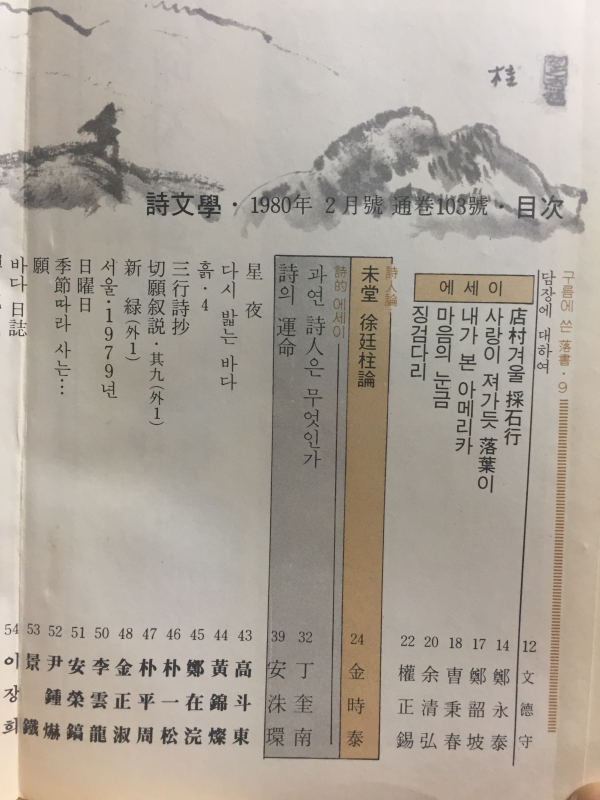 桂
詩文學・1980年 2月號 通巻103號・目次
구름에 쓴 落書・9
담장에 대하여 12 文德守
에세이
店村겨울 採石行 14 鄭永泰
사랑이 져가듯 落葉이 17 鄭韶坡
내가 본 아메리카 18 曺秉春
마음의 눈금 20 余清弘
징검다리 22 權正錫
詩人論
未堂 徐廷柱論 24 金時泰
詩的 에세이
과연 詩人은 무엇인가 32 丁奎南
詩의 運命 39 安洙環
星夜 43 高斗東
다시 밟는 바다 44 黃錦燦
흙・4 45 鄭在浣
三行詩抄 46 朴一松
切願叙説・其九(外1) 47 朴平周
新緑(外1) 48 金正淑
서울・1979년 50 李雲龍
日曜日 51 安榮鎬
季節따라 사는… 52 尹鍾爀
願 53 景鐵
바다 日誌 54 이장희